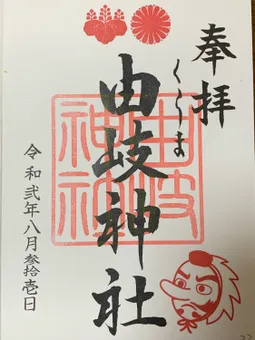 奉拝
くらま
由岐神社
由岐神社
令和弐年八月参拾壱日